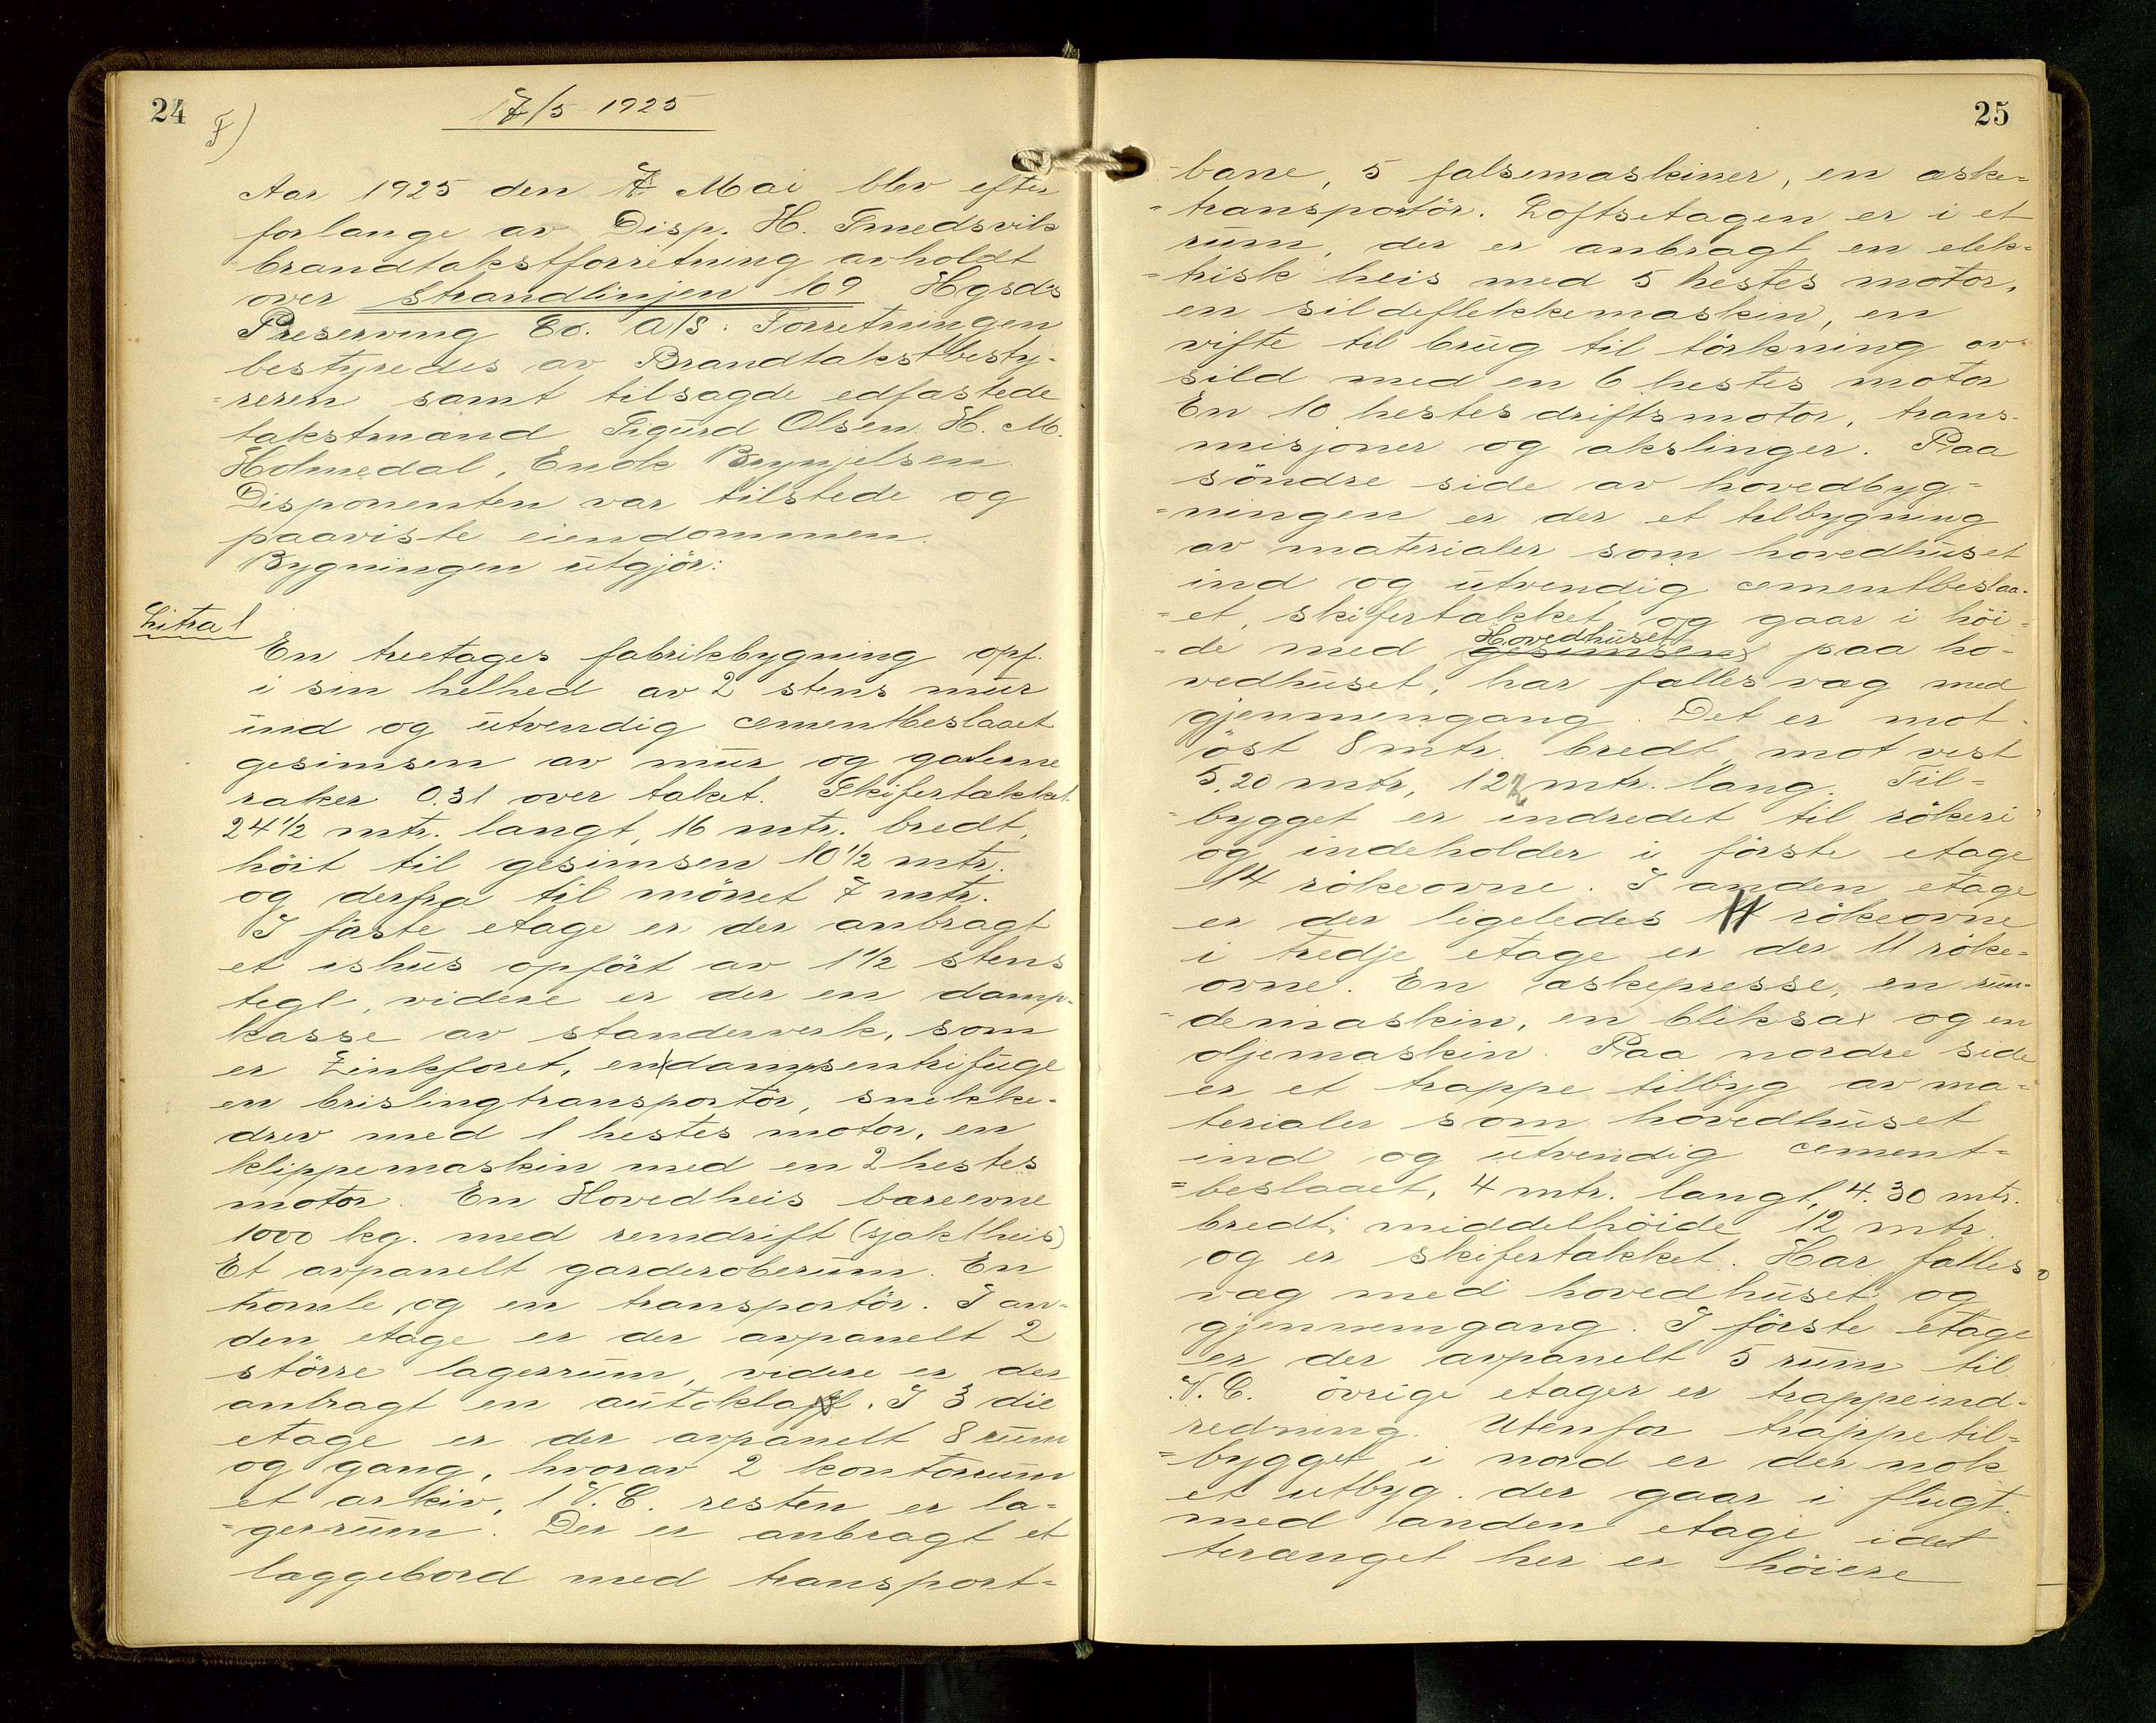 24
F)
7/5 1925
Aar 1925 den 7 Mai blev efter
forlange av Disp. H. Smedsvik
brandtakstforretning avholdt
over Strandlinjen 169 Hgsds
Preserving Co. A/S. Forretningen
bestyredes av Brandtakstbesty-
=reren samt tilsagde edfastede
takstmænd Sigurd Olsen. H. M.
Holmedal, Enok Brynjelsen.
Disponenten var tilstede og
paaviste eiendommen.
Bygningen utgjör:
Litra 1
En treetages fabrikbygning opf.
i sin helhed av 2 stens mur
ind og utvendig cementbeslaaet
gesimsen av mur og gavlerne
raker 0.31 over taket. Skifertakket.
24 1/2 mtr. langt, 16 mtr. bredt,
höit til gesimsen 10 1/2 mtr.
og derfra til mönet 7 mtr.
I förste etage er der anbragt
et ishus opfört av 1 1/2 stens
tegl, videre er der en damp-
kasse av standerverk, som
er Zinkforet, en dampsentrifuge
en brislingtransportör, snekke-
drev med 1 hestes motor, en
klippemaskin med en 2 hestes
motor. En Hovedheis bæreevne
1000 kg. med remdrift (sjaktheis)
Et avpanelt garderoberum. En
tromle og en transportör. I an-
den etage er der avpanelt 2
större lagerrum, videre er der
anbragt en autoklaf. I 3 die
etage er der avpanelt 8 rum
og gang, hvorav 2 kontorrum
et arkiv, 1 V.C. resten er la=
=gerrum. Der er anbragt et
læggebord med transport=
25
bane, 5 falsemaskiner, en aske=
=transportör. Loftsetagen er i et
rum, der er anbragt en elek=
=trisk heis med 5 hestes motor,
en sildeflekkemaskin, en
vifte til brug til törkning av
sild med en 6 hestes motor
En 10 hestes driftsmotor, trans-
misjoner og akslinger. Paa
söndre side av hovedbyg=
=ningen er der et tilbygning
av materialer som hovedhuset
ind og utvendig cementbeslaa-
=et, skifertakket og gaar i höi=
Hovedhuset
=de med gesimsen paa ho-
vedhuset, har fælles væg med
gjennemgang. Det er mot
öst 8 mtr. bredt, mot vest
5,20 mtr, 12 mtr. lang. Til=
=bygget er indredet til rökeri
og indeholder i förste etage
14 rökeovne. I anden etage
er der ligeledes 14 rökeovne
i tredje etage er der 11 röke=
ovne. En askepresse, en run-
=demaskin, en bliksax og en
oljemaskin. Paa nordre side
er et trappe tilbyg av ma=
terialer som hovedhuset
ind og utvendig cement=
=beslaaet, 4 mtr. langt, 4.30 mtr.
bredt, middelhöide 12 mtr.
og er skifertakket. Har fælles
væg med hovedhuset og
gjennemgang. I förste etage
er der avpanelt 5 rum til
V.C. övrige etager er trappeind-
redning. Utenfor trappetil=
=bygget i nord er der nok
et utbyg. der gaar i flugt.
med anden etage idet
terænget her er höiere